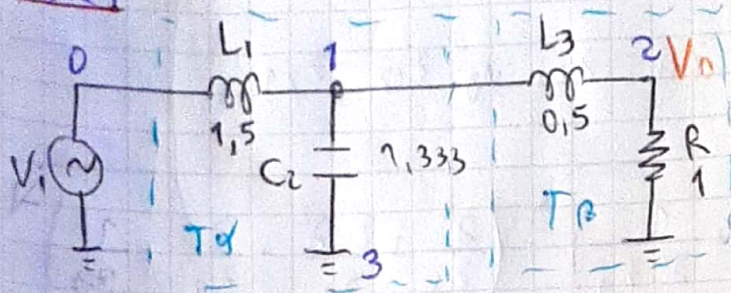 L₁ L₃
0 1 2 V₀
1,5 0,5
V₁ C₂ 1,333 R
1
Tα Tβ
3